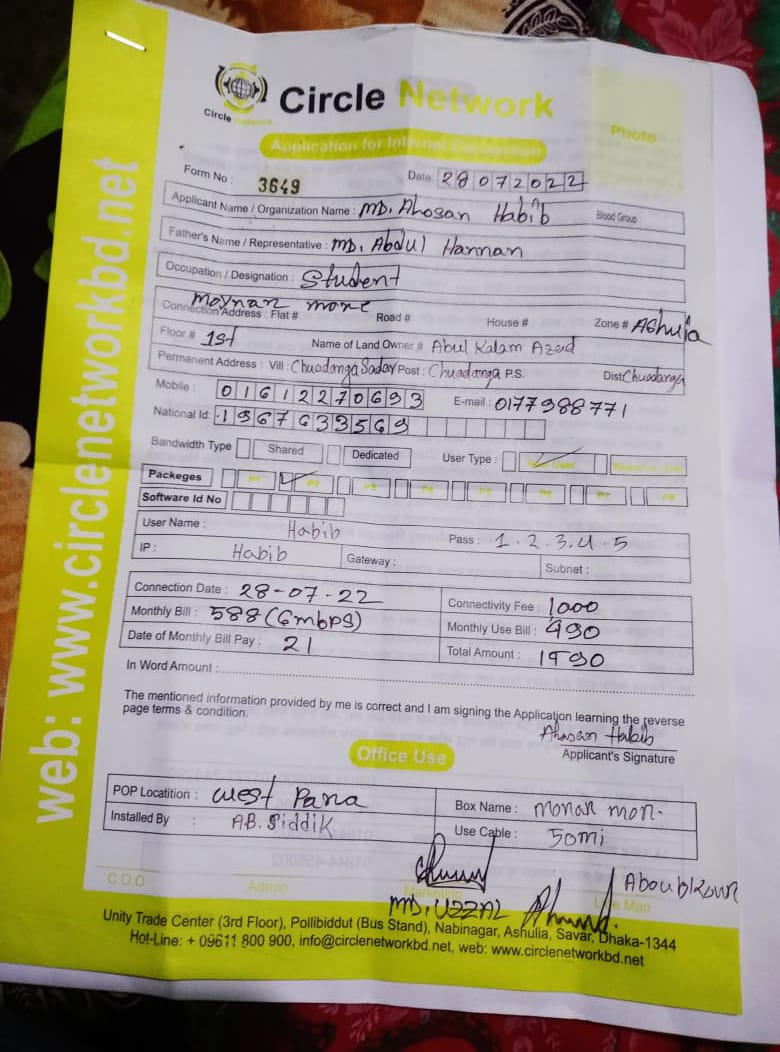 Circle Network
Circle Network
Application for Internet Connection
Photo
Form No : 3649 Date 28072022
Applicant Name / Organization Name : MD. Ahosan Habib Blood Group :
Father's Name / Representative : MD. Abdul Hannan
Occupation / Designation : Student
Moynar more
Connection Address : Flat # Road # House # Zone # Ashulia
Floor # 1st Name of Land Owner # Abul Kalam Azad
Permanent Address : Vill : Chuadanga Sadar Post : Chuadanga P.S. Dist Chuadanga
Mobile : 01612270693 E-mail : 0177988771
National Id: 1967633569
Bandwidth Type Shared Dedicated User Type : New User
Packeges P1 P2 P3 P4 P5 P6 P7 P8
Software Id No
User Name : Habib Pass : 1.2.3.4.5
IP : Habib Gateway : Subnet :
Connection Date : 28-07-22 Connectivity Fee : 1000
Monthly Bill : 588 (6mbps) Monthly Use Bill : 490
Date of Monthly Bill Pay : 21 Total Amount : 1490
In Word Amount :
The mentioned information provided by me is correct and I am signing the Application learning the reverse
page terms & condition.
Ahosan Habib
Applicant's Signature
Office Use
POP Locatition : west Para Box Name : monar mon.
Installed By : AB. Siddik Use Cable : 50mi
C.O.O Admin Marketing Line Man
MD. UZZAL
Unity Trade Center (3rd Floor), Pollibiddut (Bus Stand), Nabinagar, Ashulia, Savar, Dhaka-1344
Hot-Line: + 09611 800 900, info@circlenetworkbd.net, web: www.circlenetworkbd.net
web: www.circlenetworkbd.net